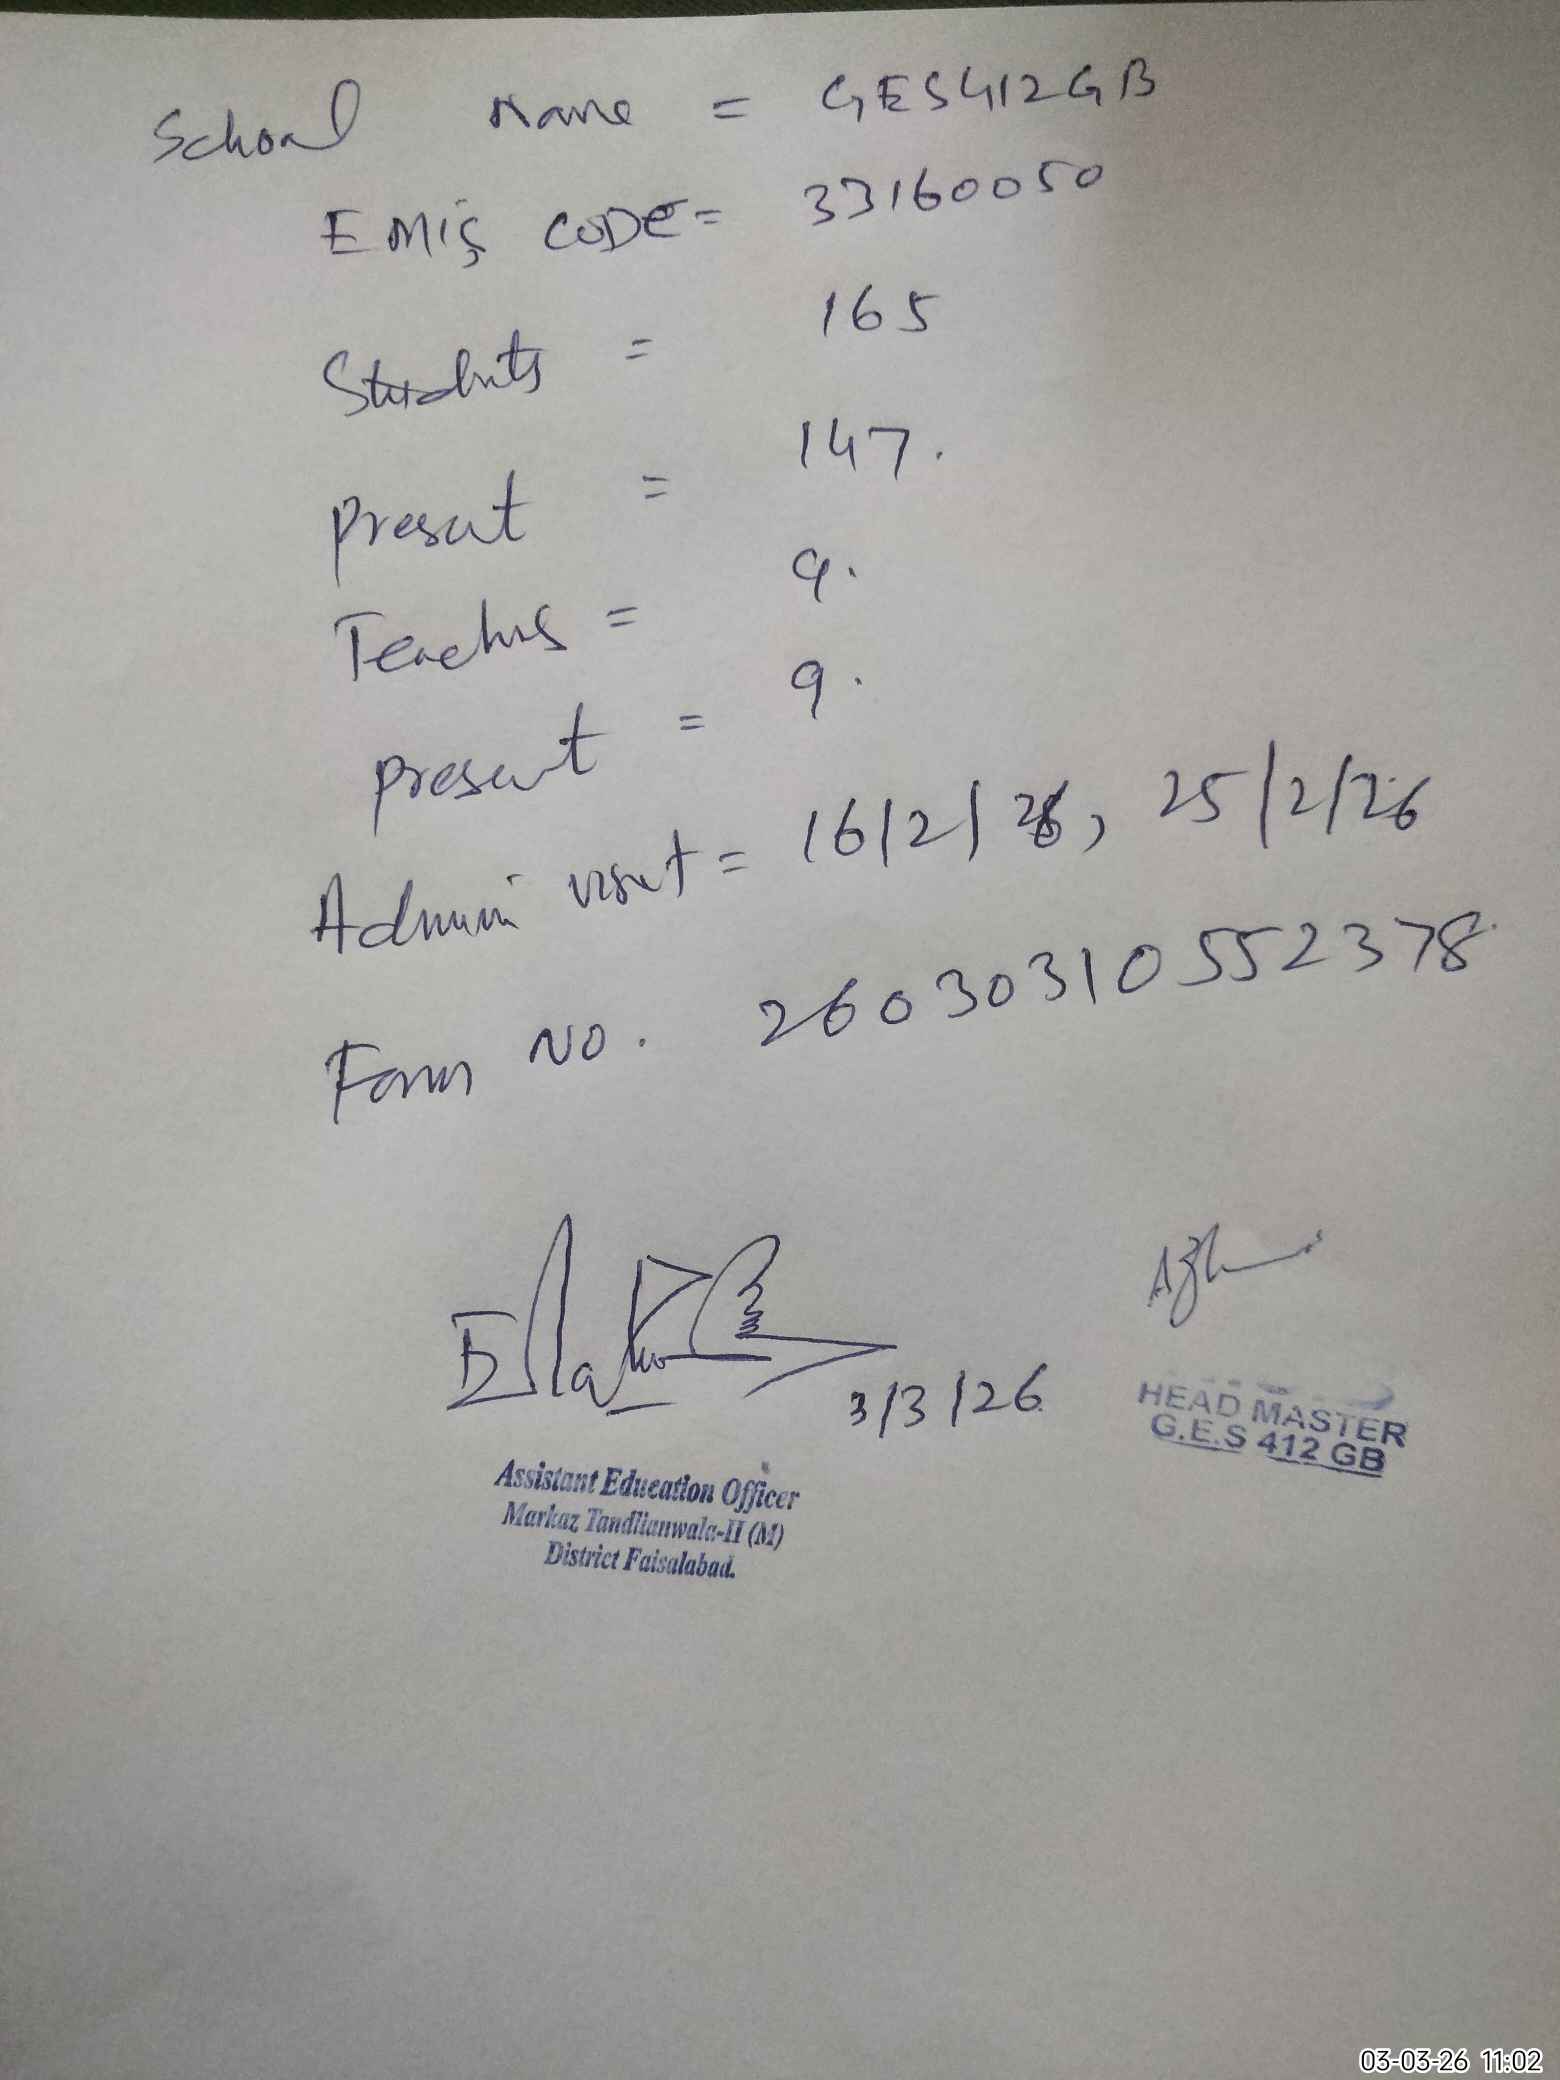 School Name = GES412GB
EMIS CODE = 33160050
Students = 165
Present = 147.
Teachers = 9.
present = 9.
Admin visit = 16/2/26, 25/2/26
Form NO. 26030310552378
3/3/26
Assistant Education Officer
Markaz Tandlianwala-II (M)
District Faisalabad.
HEAD MASTER
G.E.S 412 GB
03-03-26 11:02